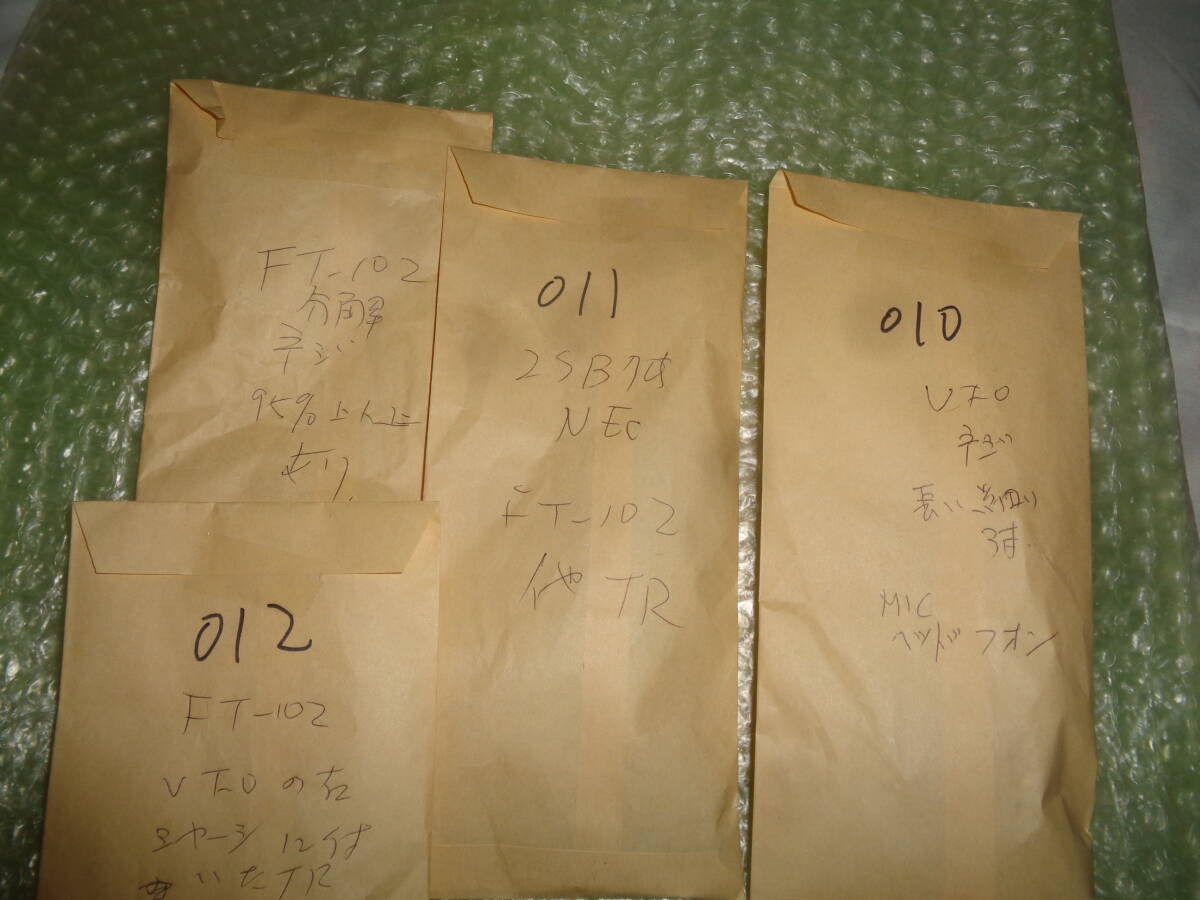 FT-102
分解
ネジ
95%以上
あり
011
2SB
NEC
FT-102
他 TR
010
VFO
ネジ
長い
3本
MIC
ヘッドフォン
012
FT-102
VFOの右
シャーシに付
いたTR